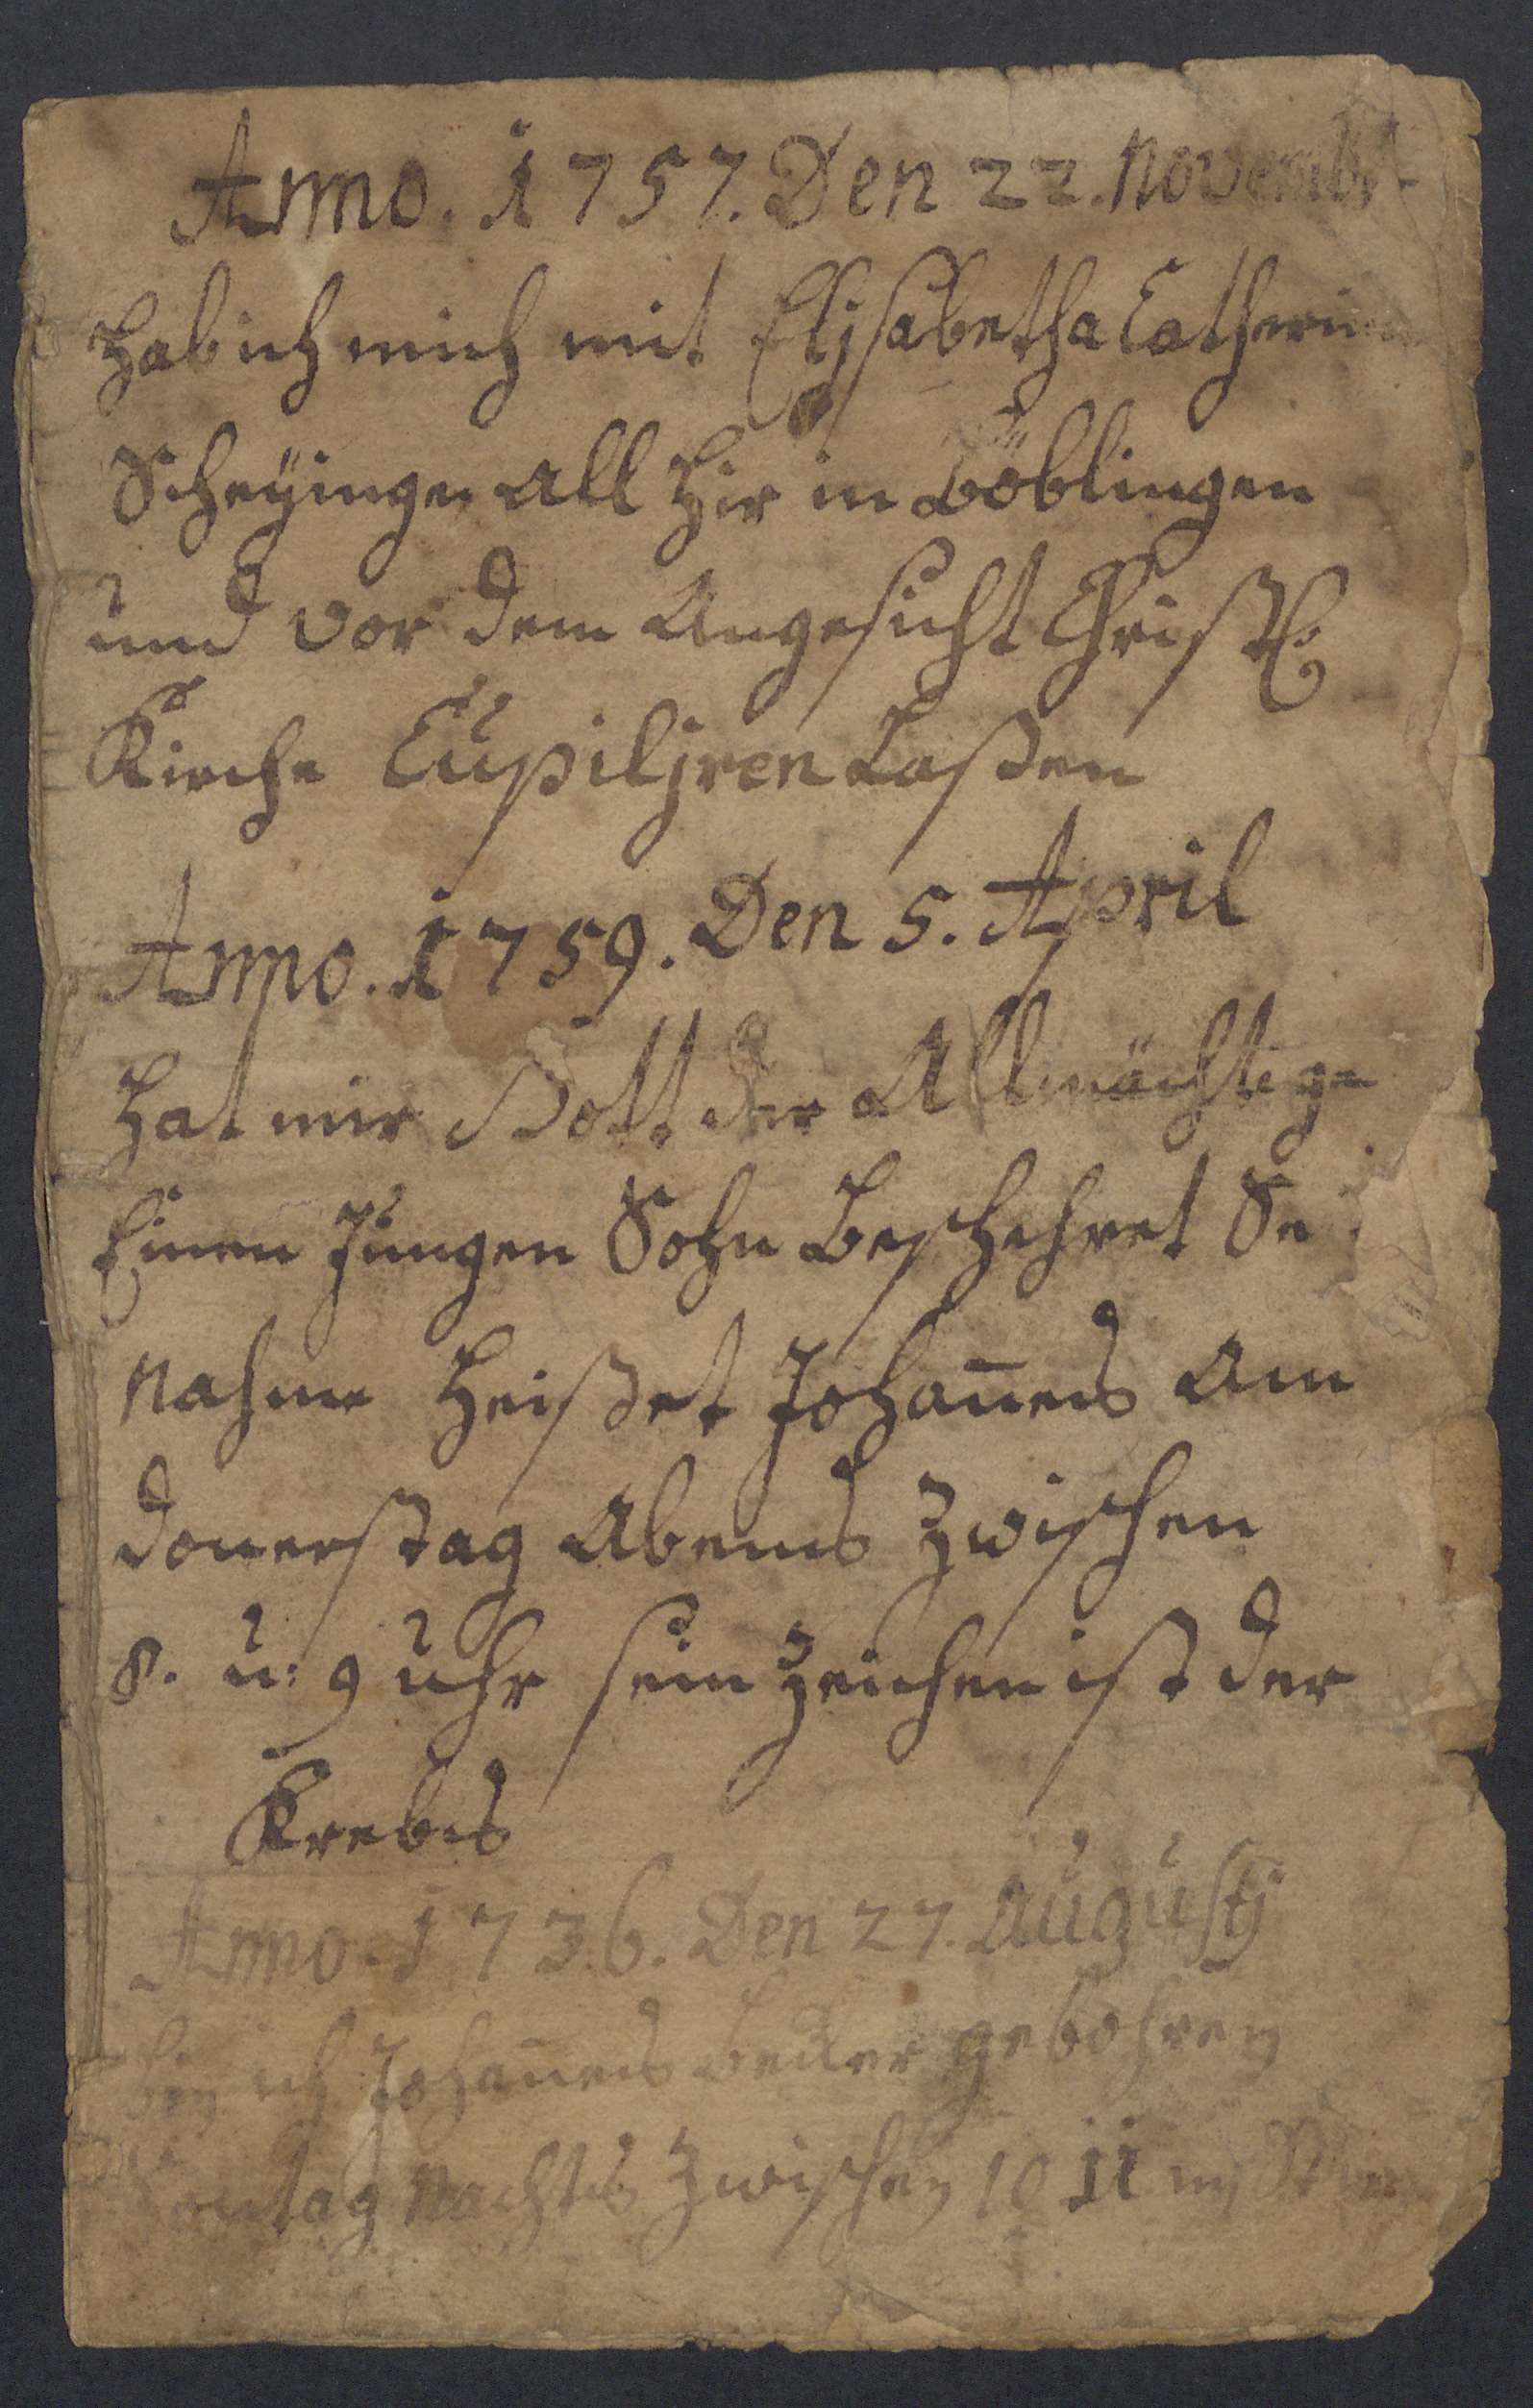 Anno. 1757. Den 22. Novembr
hab ich mich mit Elisabetha Catherina
Scheÿinger all hir in Böblingen
und vor dem Angesicht Christl:
Kirche Cupiliren Laßen
Anno. 1759. Den 5. April
hat mir Gott der Allmächtige
Einen Jungen Sohn Beschehret Se
Nahme heißet Johañes am
Donerstag Abends zwischen
8. u: 9 uhr sein zeichen ist der
Krebs
Anno. 1736. Den 27. Augusti
bin ich Johañes gebohren
Nachts zwischen 10 11